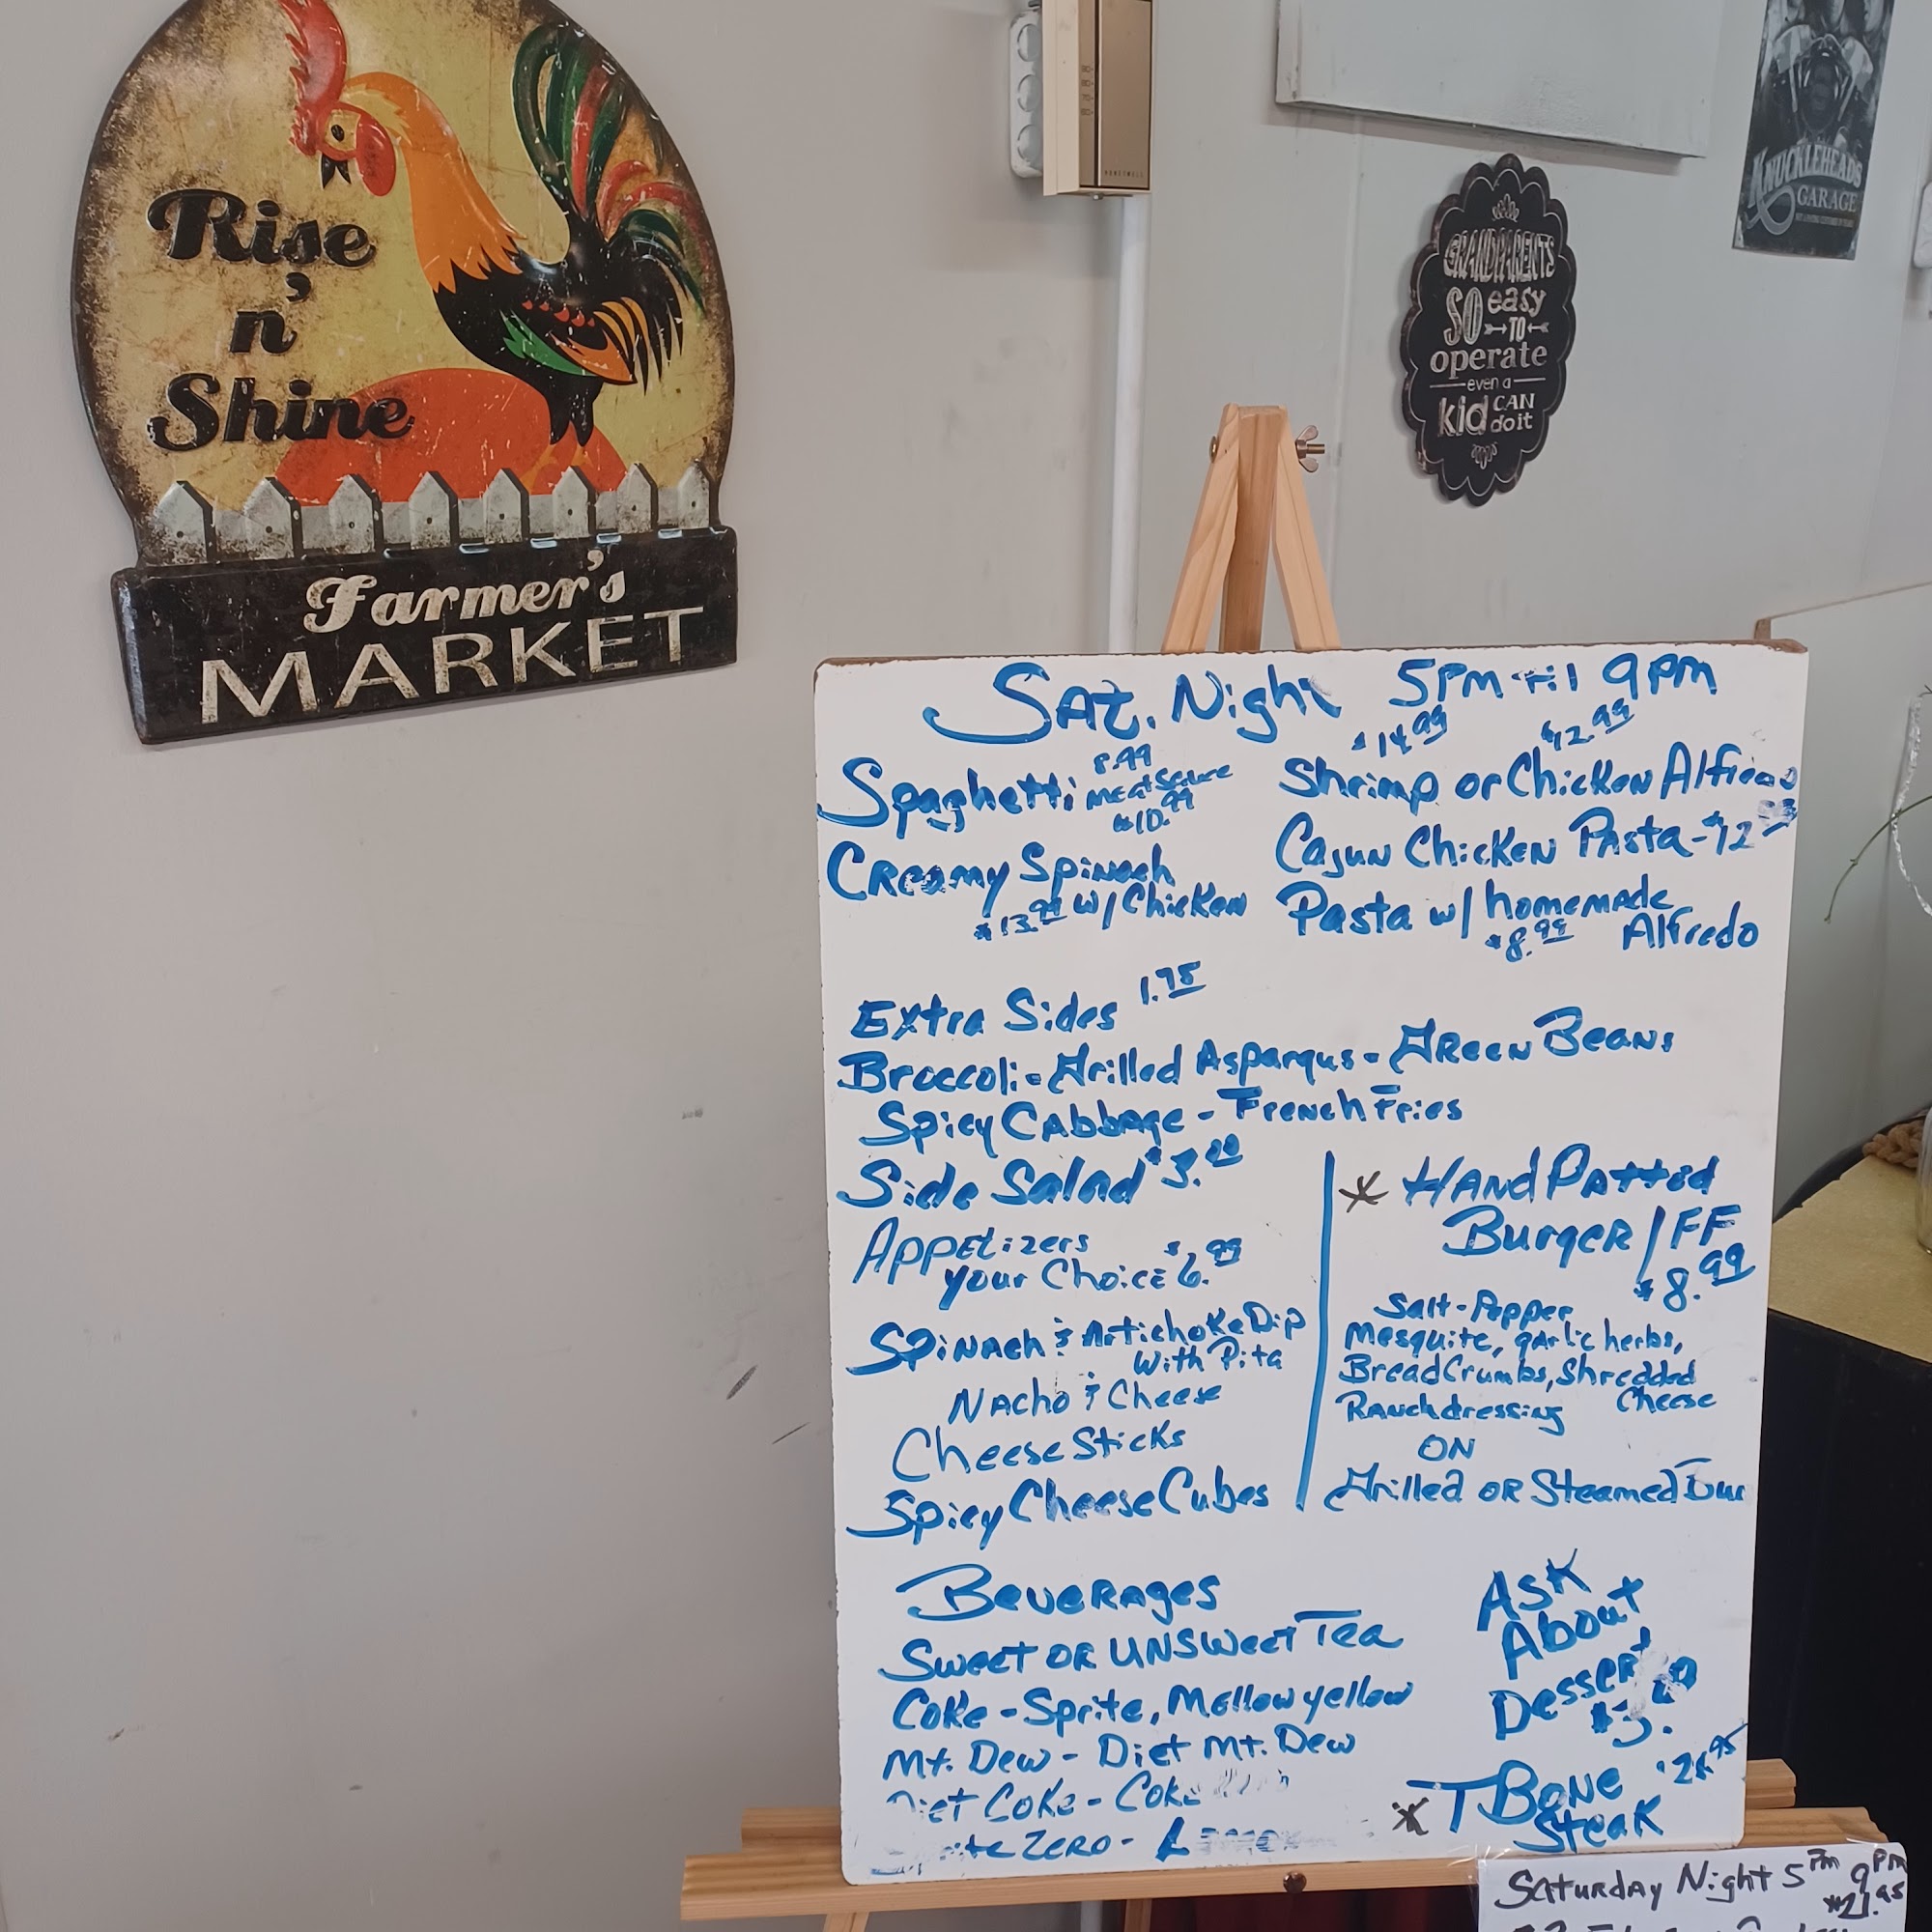 Rise
'n'
Shine
Farmer's
MARKET
HONEYWELL
GRANDPARENTS
SO easy
TO
operate
even a
kid CAN
do it
KNUCKLEHEADS
GARAGE
Sat. Night 5pm til 9pm
$14.99 $12.99
Spaghetti 8.99 Shrimp or Chicken Alfredo
meat sauce
$10.99
Cajun Chicken Pasta - $12
Creamy Spinach
$13.99 w/ Chicken
Pasta w/ homemade
$8.99 Alfredo
Extra Sides 1.75
Broccoli - Grilled Asparqus - Green Beans
Spicy Cabbage - French Fries
Side Salad $3.00
Appetizers
your Choice $6.99
Spinach & Artichoke Dip
with Pita
Nacho & Cheese
Cheese Sticks
Spicy Cheese Cubes
* Hand Patted
Burger / FF
$8.99
Salt - Pepper
Mesquite, garlic herbs,
Bread Crumbs, Shredded
Cheese
Ranch dressing
ON
Grilled or Steamed
Beverages
Sweet or Unsweet Tea
Coke - Sprite, Mellow yellow
Mt. Dew - Diet Mt. Dew
Diet Coke - Coke
Zero -
Ask
About
Dessert
* T Bone
Steak
Saturday Night 5pm 9pm